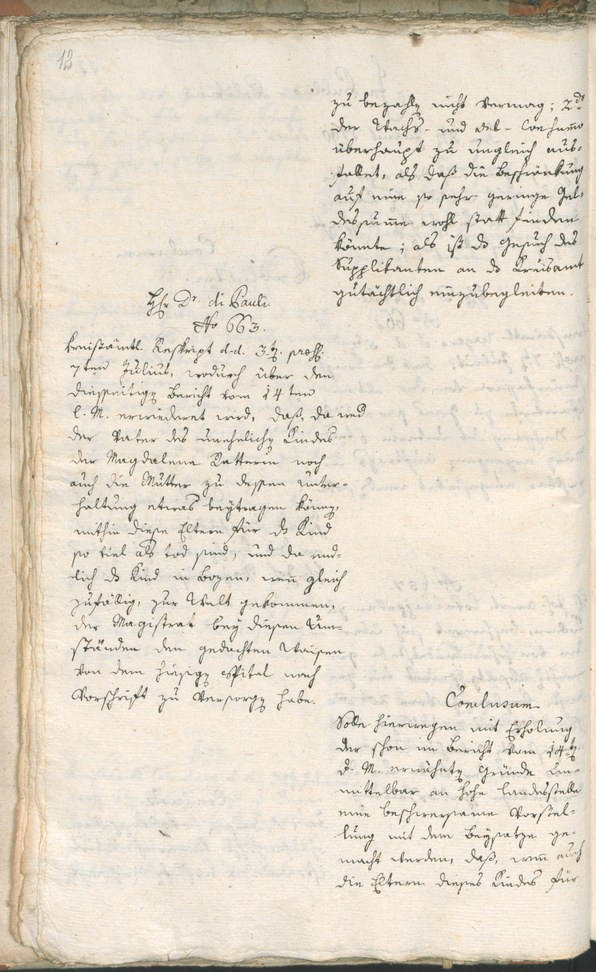 12
zu bezahlen nicht vermag; 2do
der Wachs- und Oel-Consumo
überhaupt zu ungleich aus-
fallet, als daß die Beschränkung
auf eine so sehr geringe Gel-
dessumme wohl statt finden
könnte; als ist ds Gesuch des
Supplikanten an ds Kreisamt
gutächtlich einzubegleiten.
Hr Dr. di Pauli
No 663.
Kreisämtl. Reskript d.d. 3. et praes.
7ten Julius, wodurch über den
diesseitigen Bericht vom 14ten
v. M. erwiedert wird, daß, da weder
der Vater des unehelichen Kindes
der Magdalena Ratterin noch
auch die Mutter zu dessen Unter-
haltung etwas beytragen können,
mithin diese Eltern für ds Kind
so viel als tod sind, und da end-
lich ds Kind in Bozen, wenn gleich
zufällig, zur Welt gekommen,
der Magistrat bey diesen Um-
ständen den gedachten Waisen
von dem hiesigen Spital nach
Vorschrift zu versorgen habe.
Conclusum
Solle hierwegen mit Erholung
der schon im Bericht vom 14ten
d. M. erwähnten Gründe un-
mittelbar an hohe Landesstelle
eine beschwersame Vorstel-
lung mit dem Beysatze ge-
macht werden, daß, wenn auch
die Eltern dieses Kindes für